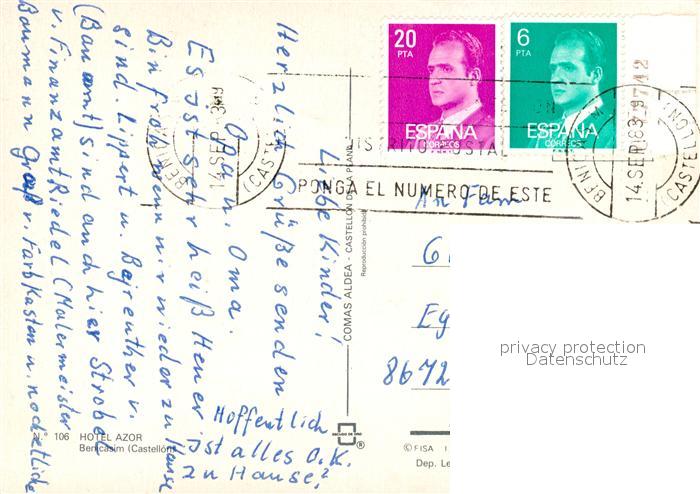 Liebe Kinder!
Herzlich Grüße senden
Opa u. Oma.
Es ist sehr heiß Heuer.
Bin froh wenn wir wieder zu Hause
sind. Lippert u. Bejreuther v.
(Bauamt) sind auch hier Strobel
v. Finanzamt Riedel (Malermeister
Baumann Groß v. Farbkasten u. noch etliche
Hoffentlich
ist alles O.K.
zu Hause?
N.° 106 HOTEL AZOR
Benicasim (Castellón)
COMAS ALDEA - CASTELLON DE LA PLANA
Reproducción prohibida
ESCUDO DE ORO
®
© FISA I
Dep. Le
20
PTA
ESPAÑA
CORREOS
6
PTA
ESPAÑA
CORREOS
9712
14 SEP 83
(CASTELLON)
14 SEP 83
DISTRITO POSTAL
PONGA EL NUMERO DE ESTE
An Fam
6
Eg
8672
privacy protection
Datenschutz